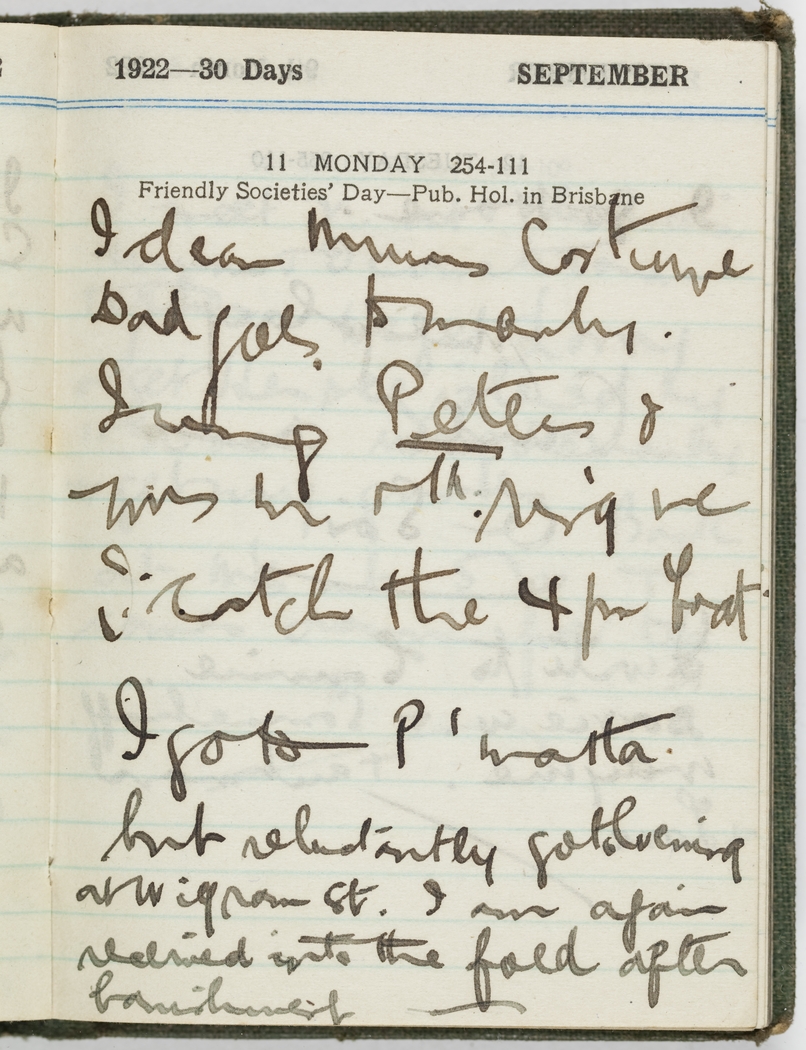 1922—30 Days SEPTEMBER
11 MONDAY 254-111
Friendly Societies' Day—Pub. Hol. in Brisbane
I clean Mums Costume
Dad goes to Manly.
I ring Peters &
ring we
I catch the 4 pm boat
I go to P'matta.
but reluctantly go to evening
at Wigram St. I am again
received into the fold after
banishment —